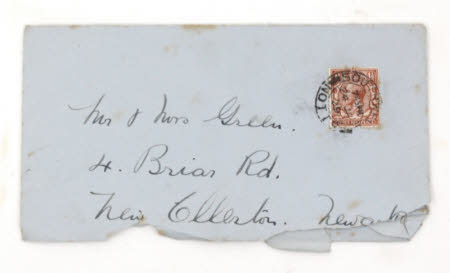 Mr & Mrs Green.
4. Briar Rd.
New Ollerton. Newark